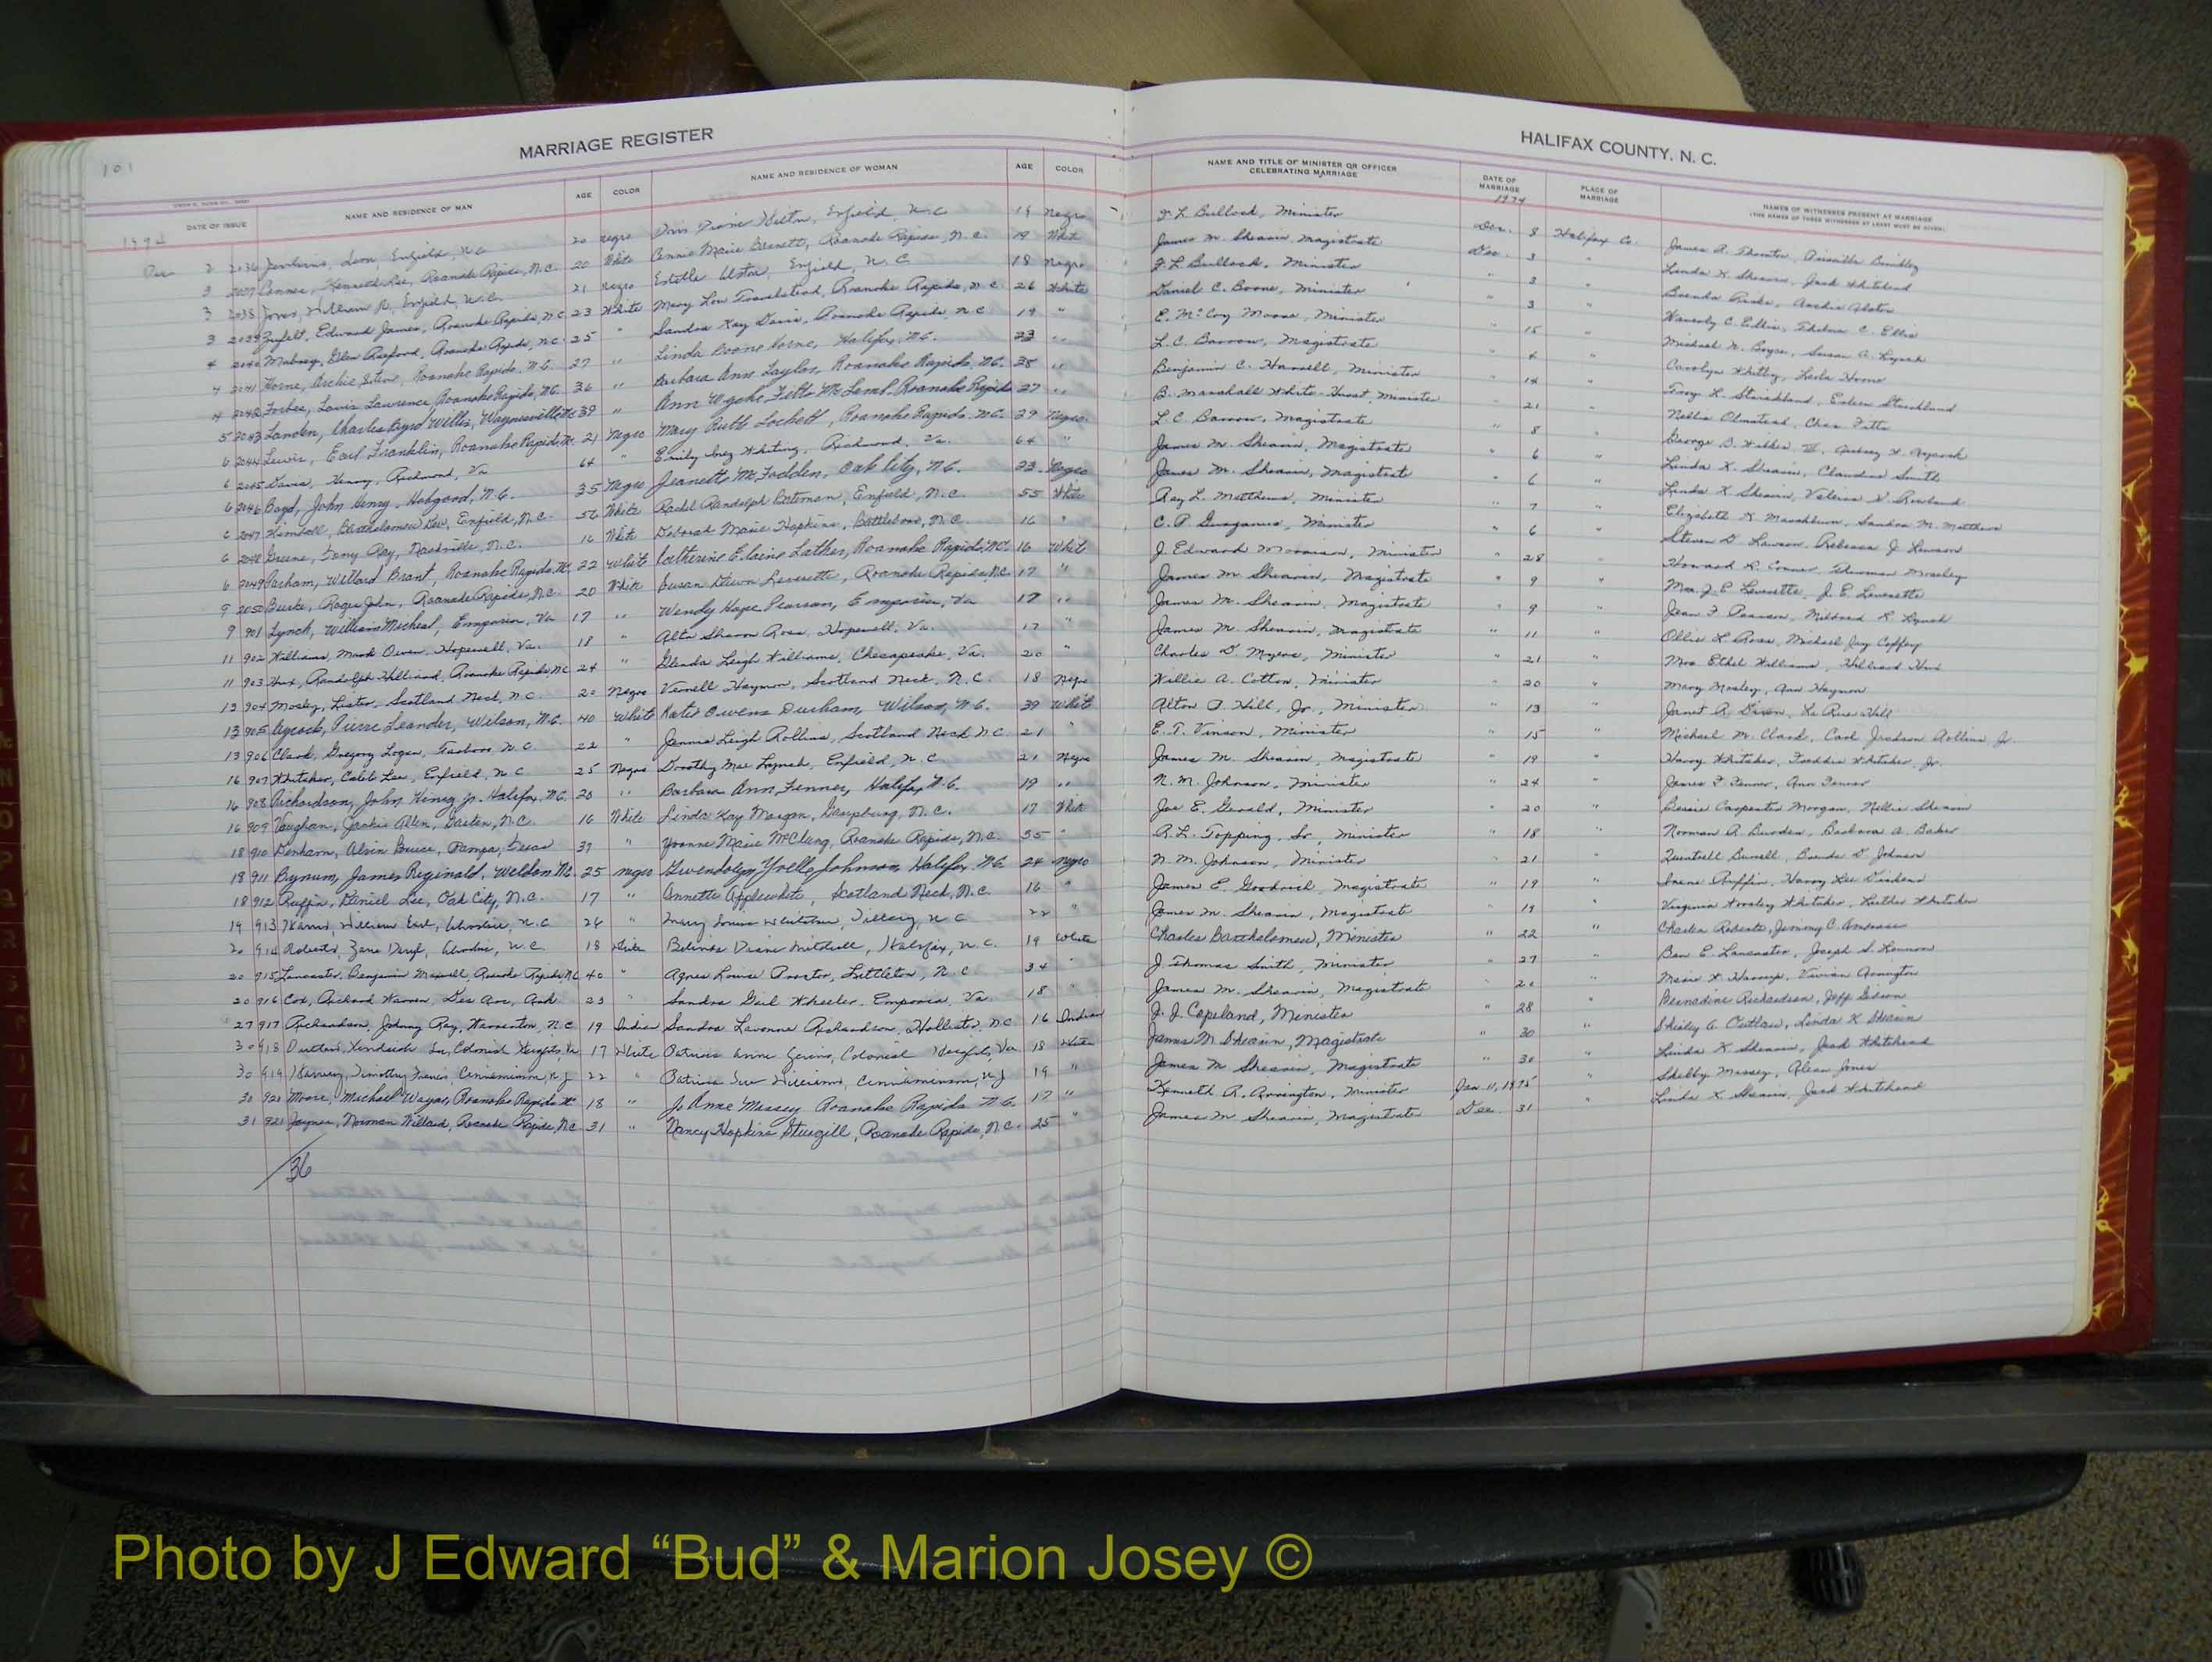 101
MARRIAGE REGISTER
HALIFAX COUNTY, N. C.
DATE OF ISSUE NAME AND RESIDENCE OF MAN AGE COLOR NAME AND RESIDENCE OF WOMAN AGE COLOR NAME AND TITLE OF MINISTER OR OFFICER CELEBRATING MARRIAGE DATE OF MARRIAGE PLACE OF MARRIAGE NAMES OF WITNESSES PRESENT AT MARRIAGE
(THE NAMES OF THREE WITNESSES AT LEAST MUST BE GIVEN)
1974 1974
Dec 2 2036 Jenkins, Leon, Enfield, N.C. 20 Negro Doris Diane Enfield, N.C. 19 Negro Bullock, Minister Dec. 8 Halifax Co. James A. Thornton, Priscilla Brinkley
3 2037 Kenneth Lee, Roanoke Rapids, N.C. 20 White Connie Marie Barnett, Roanoke Rapids, N.C. 19 White James M. Shearin, Magistrate Dec. 3 " Linda K. Shearin, Jack Whitehead
3 2038 Jones, William R, Enfield, N.C. 21 Negro Estelle Alston, Enfield, N.C. 18 Negro Bullock, Minister " " Brenda Archie Alston
3 2039 Edward James, Roanoke Rapids, N.C. 23 White Mary Lou Roanoke Rapids, N.C. 26 White Daniel C. Boone, Minister " 3 " Waverly C. Ellis, Thelma C. Ellis
4 2040 Mabrey, Glen Roanoke Rapids, N.C. 25 " Sandra Kay Davis, Roanoke Rapids, N.C. 19 " E. McCoy Moore, Minister " 15 " Michael
4 2041 Horne, Archie Roanoke Rapids, N.C. 27 " Linda Boone Horne, Halifax, N.C. 23 " L.C. Barrow, Magistrate " 4 " Carolyn Whitby, Leola Horne
4 2042 Forbes, Louis Lawrence, Roanoke Rapids, N.C. 36 " Barbara Ann Taylor, Roanoke Rapids, N.C. 38 " Benjamin C. Minister " 14 " L. Strickland, Strickland
5 2043 Charles Willis, Waynesville N.C. 39 " Ann Wyche Fitts Roanoke Rapids 27 " B. Marshall White-Hurst, Minister " 21 " Nellie Olmstead, Chas Fitts
6 2044 Lewis, Earl Franklin, Roanoke Rapids, N.C. 21 Negro Mary Ruth Lockett, Roanoke Rapids, N.C. 29 Negro L.C. Barrow, Magistrate " 8 " George
6 2045 Davis, Henry, Richmond, Va 64 " Emily Inez Whiting, Richmond, Va. 64 " James M. Shearin, Magistrate " 6 " Linda K. Shearin, Claudine Smith
6 2046 Boyd, John Henry, Hobgood, N.C. 35 Negro Jeanette McFadden, Oak City, N.C. 23 Negro James M. Shearin, Magistrate " 6 " Linda K. Shearin, Valeria Rowland
6 2047 Kimball, Bartholomew Enfield, N.C. 56 White Rachel Randolph Bateman, Enfield, N.C. 55 White Ray L. Matthews, Minister " 7 " Elizabeth Sandra M. Matthews
6 2048 Greene, Tony Ray, Nashville, N.C. 16 White Deborah Marie Hopkins, Battleboro, N.C. 16 " C. P. Minister " 6 " Steven D. Lawson, Rebecca J. Lawson
6 2049 Parham, Willard Brant, Roanoke Rapids, N.C. 22 White Catherine Elaine Lather, Roanoke Rapids, N.C. 16 White J. Edward Morrison, Minister " 28 " Howard R. Conner, Thurman Moseley
9 2050 Burke, Roger John, Roanoke Rapids, N.C. 20 White Susan Dawn Leverette, Roanoke Rapids N.C. 17 " James M Shearin, Magistrate " 9 " Mrs. J. E. Leverette, J. E. Leverette
9 901 Lynch, William Micheal, Emporia, Va 17 " Wendy Hope Pearson, Emporia, Va 17 " James M. Shearin, Magistrate " 9 " Jean F. Pearson, Mildred R. Lynch
11 902 Williams, Mark Owen, Hopewell, Va. 18 " Alta Sharon Ross, Hopewell, Va. 17 " James M. Shearin, Magistrate " 11 " Ollie L. Ross, Michael Jay Coffey
11 903 Hux, Randolph Hilliard, Roanoke Rapids N.C. 24 " Glenda Leigh Williams, Chesapeake, Va. 20 " Charles D. Myers, Minister " 21 " Mrs Ethel Williams, Hilliard Hux
12 904 Mosley, Lister, Scotland Neck, N.C. 20 Negro Vernell Haymon, Scotland Neck, N.C. 18 Negro Willie A. Cotton, Minister " 20 " Mary Mosley, Ann Haymon
13 905 Aycock, Pierre Leander, Wilson, N.C. 40 White Katie Owens Durham, Wilson, N.C. 39 White Alton Hill, Jr., Minister " 13 " Janet R. Dixon, La Rue Hill
13 906 Clark, Gregory Logan, Tarboro N.C. 22 " Jennie Leigh Rollins, Scotland Neck N.C. 21 " E. T. Vinson, Minister " 15 " Michael M. Clark, Carl Jackson Rollins Jr.
16 907 Whitaker, Caleb Lee, Enfield, N.C. 25 Negro Dorothy Mae Lynch, Enfield, N.C. 21 Negro James M. Shearin, Magistrate " 19 " Harry Whitaker, Freddie Whitaker, Jr.
16 908 Richardson, John Henry Jr. Halifax, N.C. 20 " Barbara Ann Fenner, Halifax, N.C. 19 " N. M. Johnson, Minister " 24 " James F. Fenner, Ann Fenner
16 909 Vaughan, Jackie Allen, Gaston, N.C. 16 White Linda Kay Morgan, Garysburg, N.C. 17 White Joe E. Gerald, Minister " 20 " Bessie Carpenter Morgan, Nellie Shearin
18 910 Denham, Alvin Bruce, Pampa, Texas 39 " Yvonne Marie McClung, Roanoke Rapids, N.C. 35 " R. L. Topping, Sr, Minister " 18 " Norman R. Burden, Barbara A. Baker
18 911 Bynum, James Reginald, Weldon N.C. 25 Negro Gwendolyn Yvette Johnson, Halifax, N.C. 24 Negro N. M. Johnson, Minister " 21 " Burrell, Brenda D. Johnson
18 912 Ruffin, Daniel Lee, Oak City, N.C. 17 " Annette Applewhite, Scotland Neck, N.C. 16 " James E. Goodrich, Magistrate " 19 " Irene Ruffin, Harry Lee
19 913 Harris, William Earl, N.C. 26 " Mary Louise Whitaker, Tillery, N.C. 22 " James M. Shearin, Magistrate " 19 " Virginia Whitaker, Luther Whitaker
20 914 Roberts, Zane Daryl, N.C. 18 White Belinda Diane Mitchell, Halifax, N.C. 19 White Charles Bartholomew, Minister " 22 " Charlea Roberts, Jimmy C. Ambrose
20 915 Lancaster, Benjamin Maxwell, Roanoke Rapids N.C. 40 " Agnes Louise Proctor, Littleton, N.C 34 " J. Thomas Smith, Minister " 27 Ben E. Lancaster, Joseph S. Lennon
20 916 Cox, Richard Warren, Des Arc, Ark. 23 " Sandra Gail Wheeler, Emporia, Va 18 " James M. Shearin, Magistrate " " Vivian Arrington
27 917 Richardson, Johnny Ray, Warrenton, N.C 19 Indian Sandra Lavonne Richardson, Hollister, N.C. 16 Indian J. J. Copeland, Minister " 28 " Bernadine Richardson, Jeff
30 918 Outlaw, Kendrick Colonial Heights, Va 17 White Patricia Anne Colonial Heights, Va 18 White James M Shearin, Magistrate " 30 " Shirley A. Outlaw, Linda K Shearin
30 919 Harvey, Timothy Francis, Cinnaminson, N.J 22 " Patricia Sue Williams, Cinnaminson, N.J 19 " James M. Shearin, Magistrate " 30 Linda K. Shearin, Jack Whitehead
30 920 Moore, Michael Wayne, Roanoke Rapids N.C. 18 " Jo Anne Massey Roanoke Rapids N.C. 17 " Kenneth R. Arrington, Minister Jan. 11, 1975 " Shelby Massey, Jones
31 921 Joyner, Norman Willard, Roanoke Rapids, N.C. 31 " Nancy Hopkins Sturgill, Roanoke Rapids, N.C. 25 " James M Shearin, Magistrate Dec. 31 " Linda K Shearin, Jack Whitehead
/36
Photo by J Edward “Bud” & Marion Josey ©